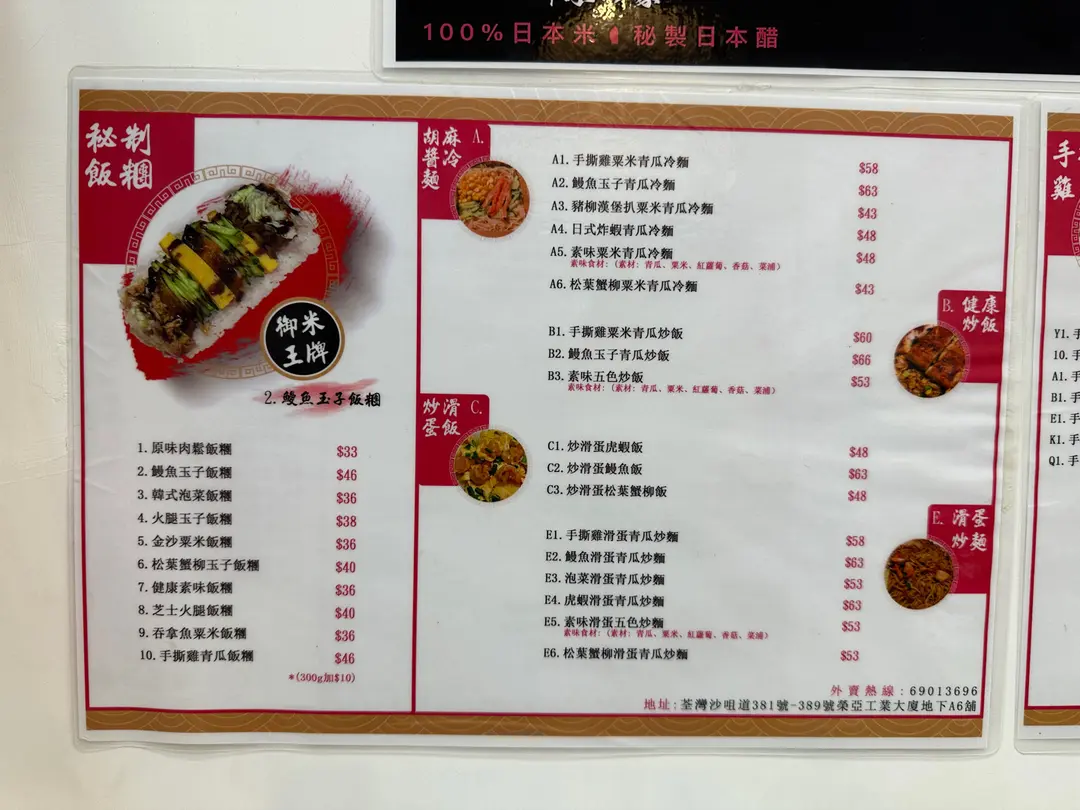 100%日本米 秘製日本醋
秘制
飯糰
御米
王牌
2. 鰻魚玉子飯糰
1. 原味肉鬆飯糰 $33
2. 鰻魚玉子飯糰 $46
3. 韓式泡菜飯糰 $36
4. 火腿玉子飯糰 $38
5. 金沙粟米飯糰 $36
6. 松葉蟹柳玉子飯糰 $40
7. 健康素味飯糰 $36
8. 芝士火腿飯糰 $40
9. 吞拿魚粟米飯糰 $36
10. 手撕雞青瓜飯糰 $46
*(300g加$10)
胡麻 A.
醬冷
麵
A1. 手撕雞粟米青瓜冷麵 $58
A2. 鰻魚玉子青瓜冷麵 $63
A3. 豬柳漢堡扒粟米青瓜冷麵 $43
A4. 日式炸蝦青瓜冷麵 $48
A5. 素味粟米青瓜冷麵 $48
素味食材:（素材: 青瓜、粟米、紅蘿蔔、香菇、菜浦）
A6. 松葉蟹柳粟米青瓜冷麵 $43
B. 健康
炒飯
B1. 手撕雞粟米青瓜炒飯 $60
B2. 鰻魚玉子青瓜炒飯 $66
B3. 素味五色炒飯 $53
素味食材:（素材: 青瓜、粟米、紅蘿蔔、香菇、菜浦）
炒滑 C.
蛋飯
C1. 炒滑蛋虎蝦飯 $48
C2. 炒滑蛋鰻魚飯 $63
C3. 炒滑蛋松葉蟹柳飯 $48
E. 滑蛋
炒麵
E1. 手撕雞滑蛋青瓜炒麵 $58
E2. 鰻魚滑蛋青瓜炒麵 $63
E3. 泡菜滑蛋青瓜炒麵 $53
E4. 虎蝦滑蛋青瓜炒麵 $63
E5. 素味滑蛋五色炒麵 $53
素味食材:（素材: 青瓜、粟米、紅蘿蔔、香菇、菜浦）
E6. 松葉蟹柳滑蛋青瓜炒麵 $53
外賣熱線:69013696
地址:荃灣沙咀道381號-389號榮亞工業大廈地下A6舖
手
雞
Y1. 手
10. 手
A1. 手
B1. 手
E1. 手
K1. 手
Q1. 手